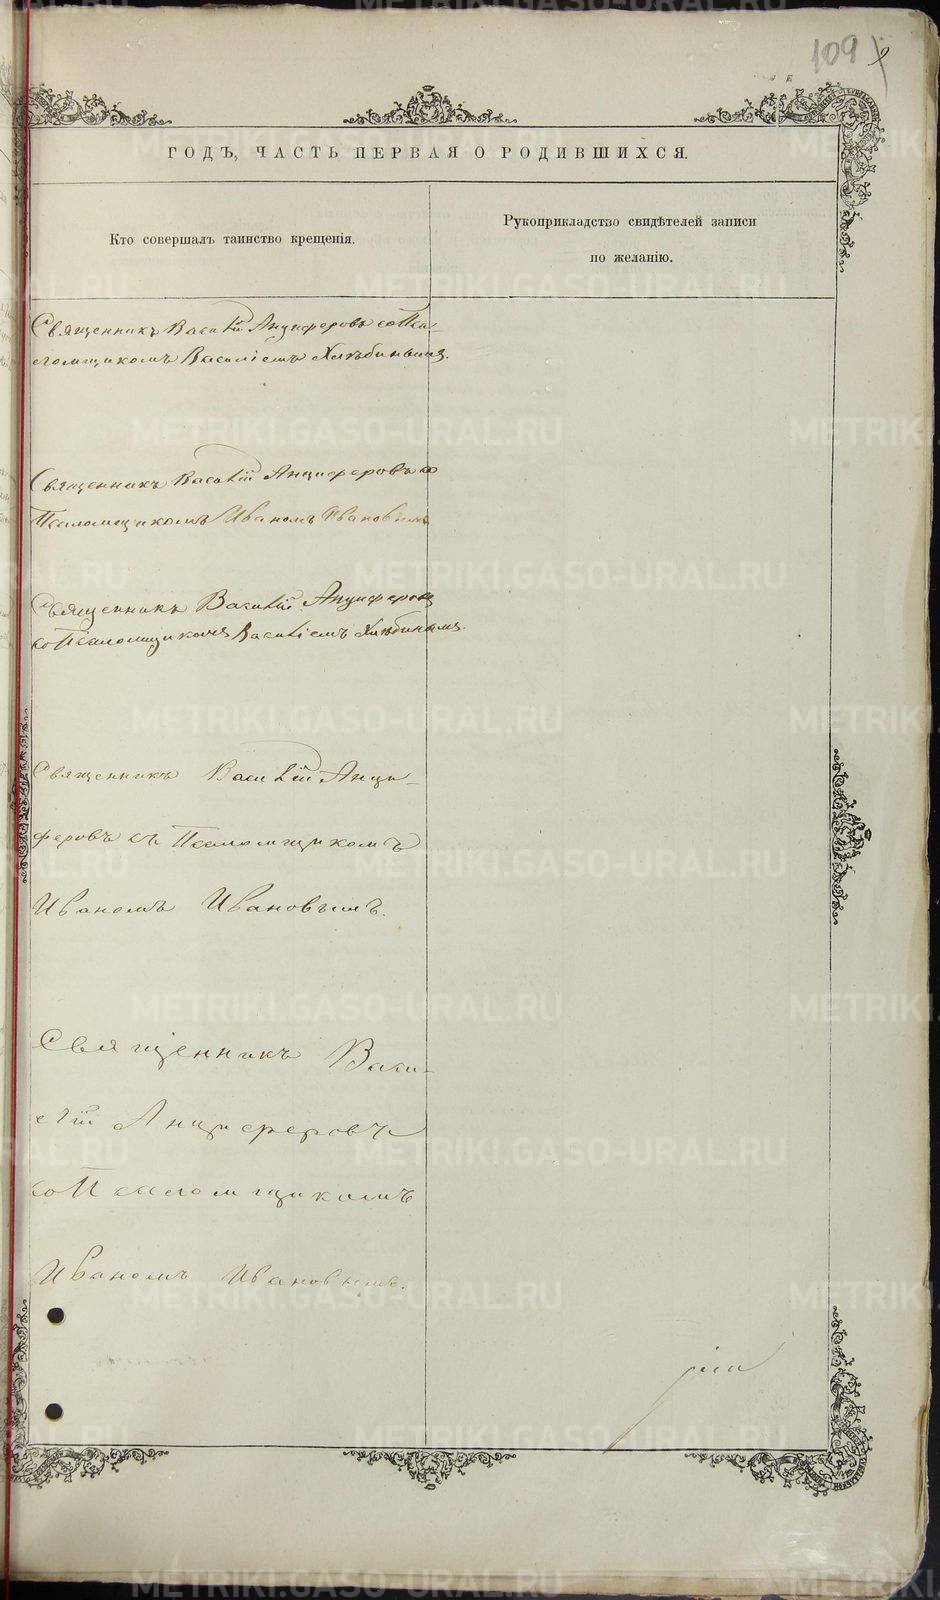 109
ГОДЪ, ЧАСТЬ ПЕРВАЯ О РОДИВШИХСЯ.
Кто совершалъ таинство крещенія.
Рукоприкладство свидѣтелей записи
по желанію.
Священникъ Василій Анциферовъ со Пса-
ломщикомъ Василіемъ Хлѣбинымъ.
Священникъ Василій Анциферовъ со
Псаломщикомъ Иваномъ Ивановымъ
Священникъ Василій Анциферовъ
со Псаломщикомъ Василіемъ Хлѣбинымъ.
Священникъ Василій Анци-
феровъ съ Псаломщикомъ
Иваномъ Ивановымъ.
Священникъ Васи-
лій Анциферовъ
со Псаломщикомъ
Иваномъ Ивановымъ.
METRIKI.GASO-URAL.RU